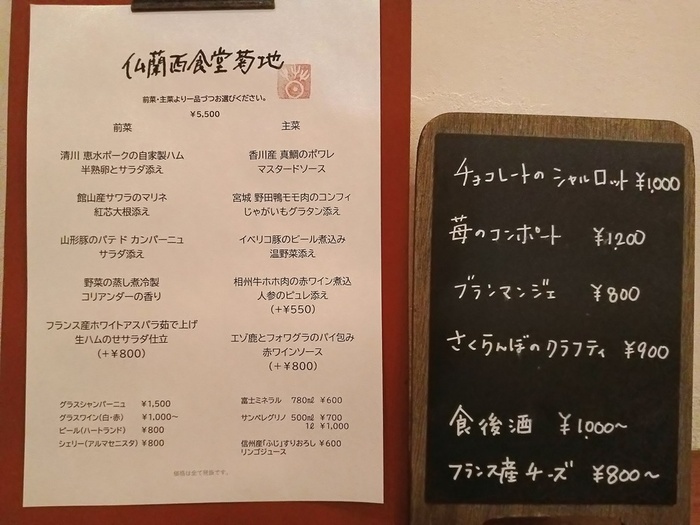 仏蘭西食堂菊地
前菜・主菜より一品づつお選びください。
¥5,500
前菜
清川 恵水ポークの自家製ハム
半熟卵とサラダ添え
館山産サワラのマリネ
紅芯大根添え
山形豚のパテ ド カンパーニュ
サラダ添え
野菜の蒸し煮冷製
コリアンダーの香り
フランス産ホワイトアスパラ茹で上げ
生ハムのせサラダ仕立
(+¥800)
主菜
香川産 真鯛のポワレ
マスタードソース
宮城 野田鴨モモ肉のコンフィ
じゃがいもグラタン添え
イベリコ豚のビール煮込み
温野菜添え
相州牛ホホ肉の赤ワイン煮込
人参のピュレ添え
(+¥550)
エゾ鹿とフォワグラのパイ包み
赤ワインソース
(+¥800)
グラスシャンパーニュ ¥1,500
グラスワイン(白・赤) ¥1,000~
ビール(ハートランド) ¥800
シェリー(アルマセニスタ) ¥800
富士ミネラル 780㎖ ¥600
サンペレグリノ 500㎖ ¥700
1ℓ ¥1,000
信州産「ふじ」すりおろし ¥600
リンゴジュース
価格は全て税抜です。
チョコレートのシャルロット ¥1,000
苺のコンポート ¥1,200
ブランマンジェ ¥800
さくらんぼのクラフティ ¥900
食後酒 ¥1,000~
フランス産チーズ ¥800~